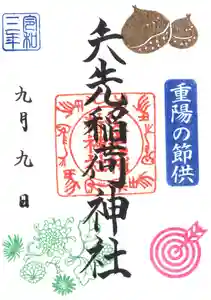 重陽の節供
矢先稲荷神社
令和
三年
九月九日